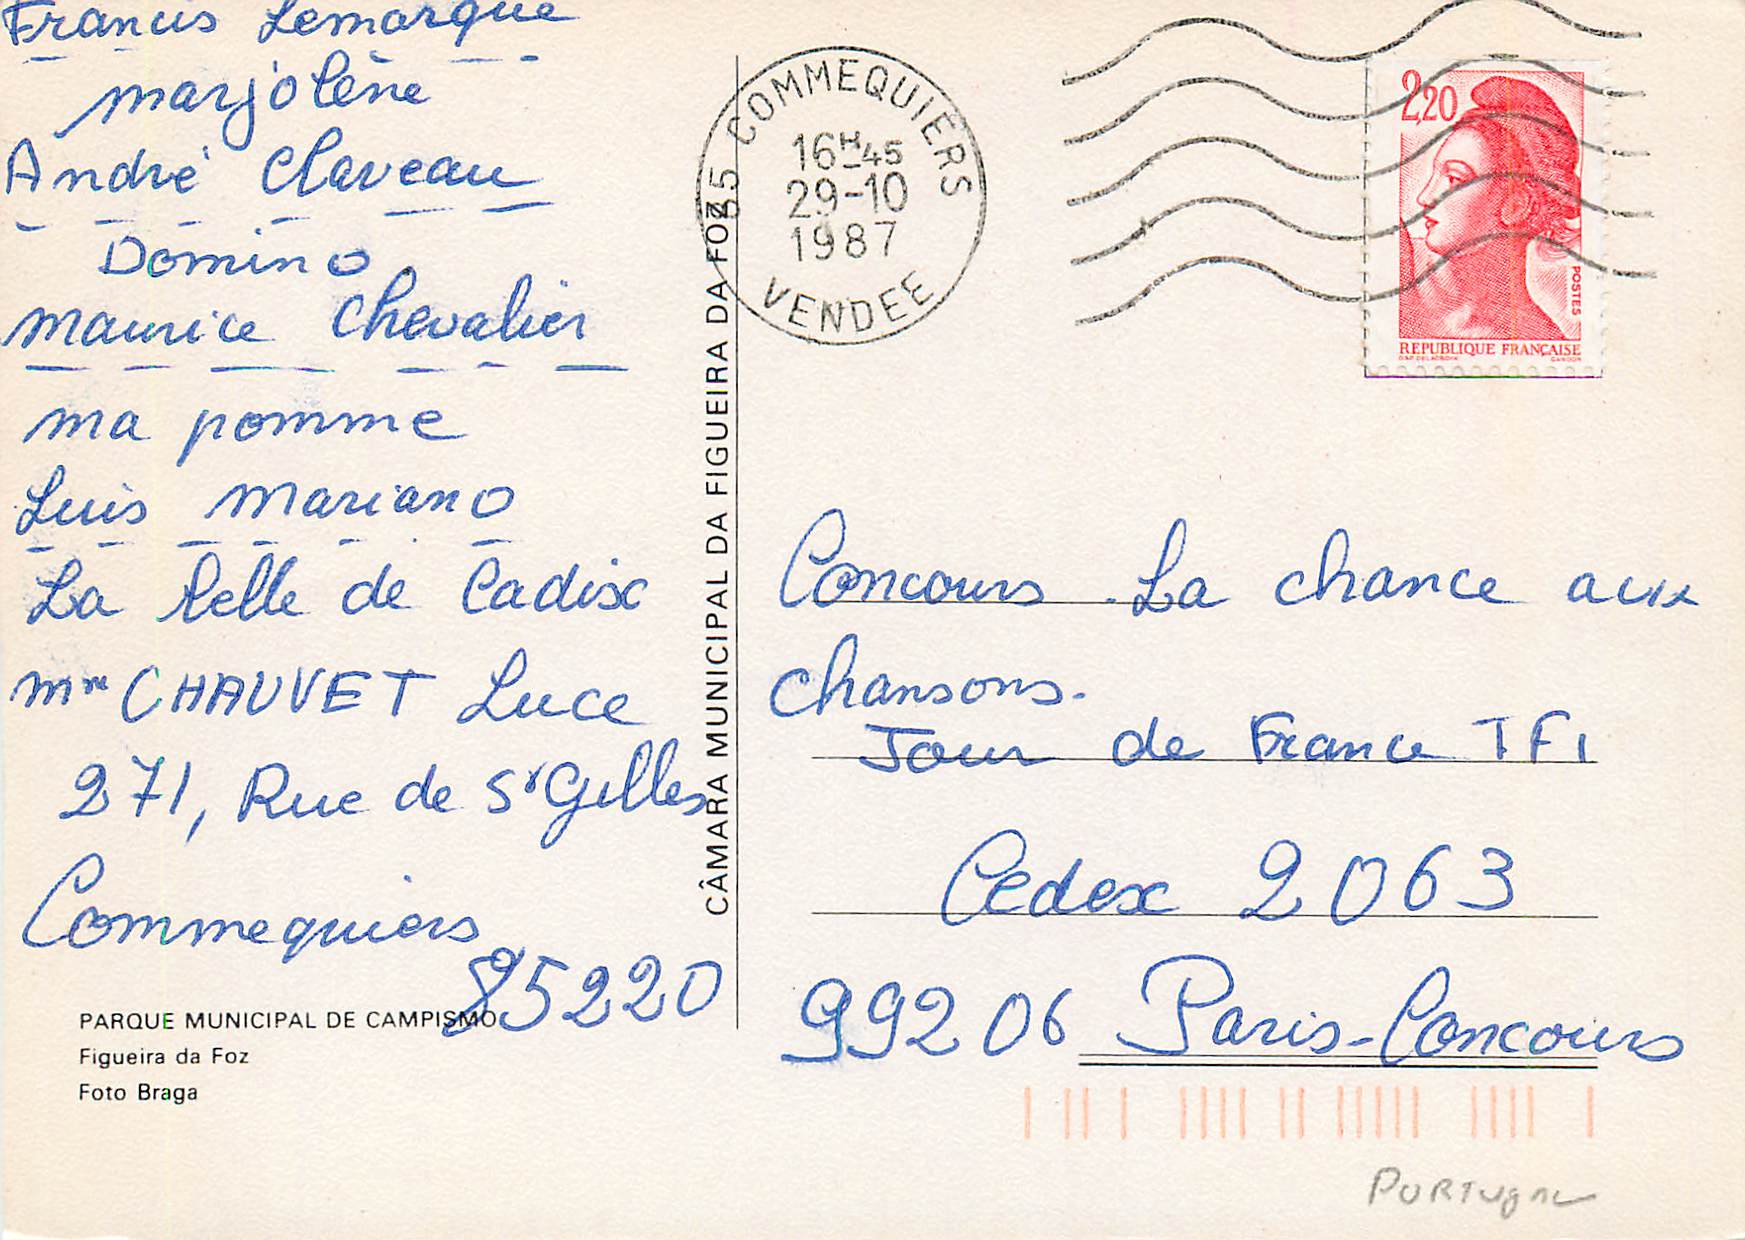 Francis Lemarque
marjolène
André Claveau
Domino
maurice Chevalier
ma pomme
Luis Mariano
La belle de Cadix
mme CHAUVET Luce
271, Rue de St Gilles
Commequiers
85220
PARQUE MUNICIPAL DE CAMPISMO
Figueira da Foz
Foto Braga
CÂMARA MUNICIPAL DA FIGUEIRA DA FOZ
85 COMMEQUIERS
16H45
29-10
1987
VENDEE
2,20
POSTES
REPUBLIQUE FRANÇAISE
Concours La chance aux
chansons.
Jour de France TF1
Cedex 2063
99206 Paris-Concours
PORTUgAL